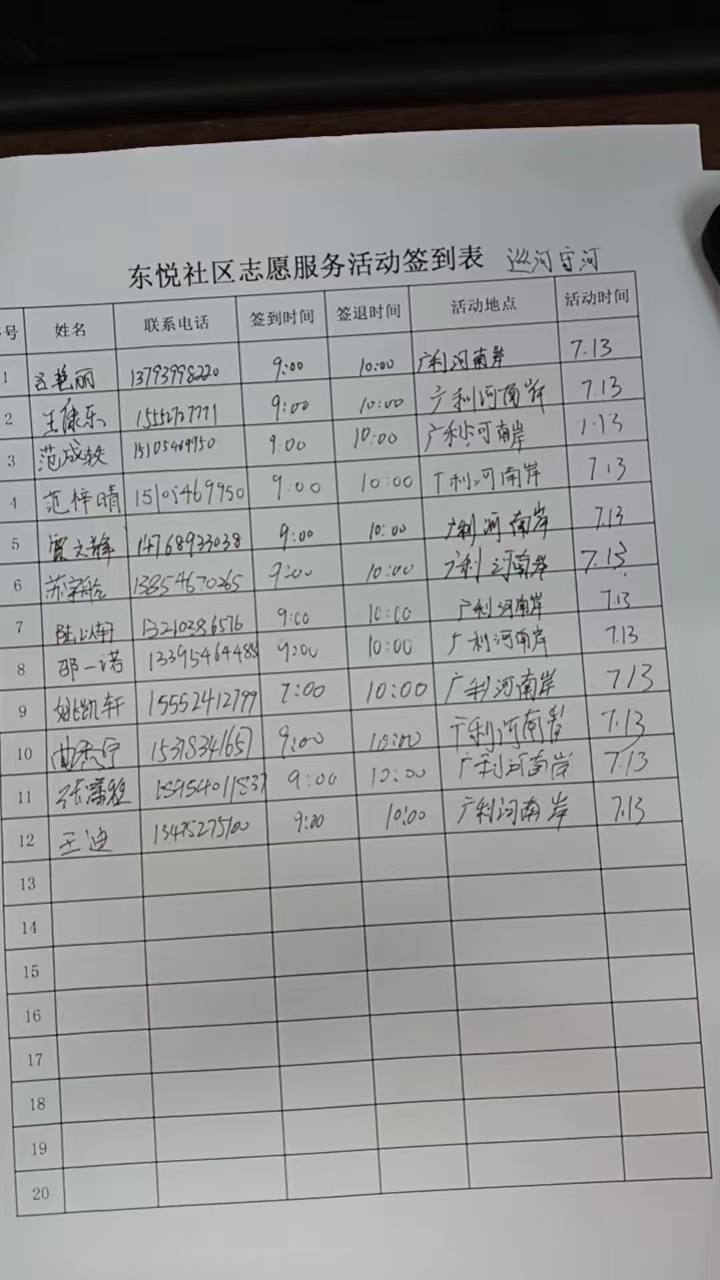 东悦社区志愿服务活动签到表 巡河守河
序号 姓名 联系电话 签到时间 签退时间 活动地点 活动时间
1 艳丽 13793998220 9:00 10:00 广利河南岸 7.13
2 王康乐 15552727771 9:00 10:00 广利河南岸 7.13
3 范成轶 15105469950 9:00 10:00 广利河南岸 7.13
4 范梓晴 15105469950 9:00 10:00 广利河南岸 7.13
5 贾文 14768933038 9:00 10:00 广利河南岸 7.13
6 苏 13854670265 9:00 10:00 广利河南岸 7.13
7 陆以轩 13210386576 9:00 10:00 广利河南岸 7.13
8 邵一诺 13395464488 9:00 10:00 广利河南岸 7.13
9 姚凯轩 15552412799 9:00 10:00 广利河南岸 7.13
10 曲 宁 15318341657 9:00 10:00 广利河南岸 7.13
11 张 18954011837 9:00 10:00 广利河南岸 7.13
12 王迪 13475275100 9:00 10:00 广利河南岸 7.13
13
14
15
16
17
18
19
20